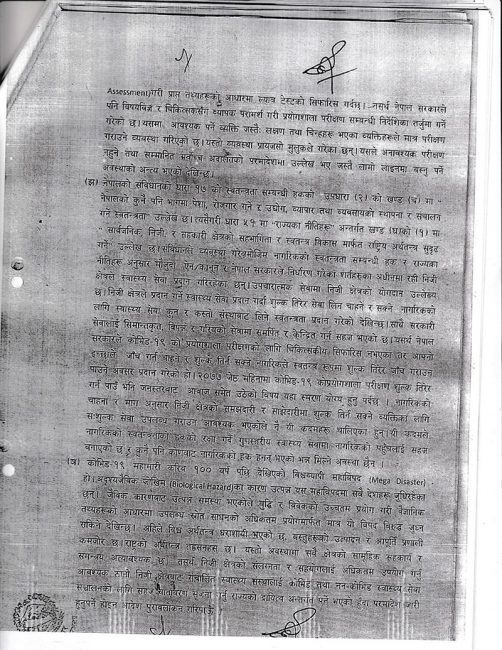 Assessment)गरी प्राप्त तथ्यहरूको आधारमा ल्याव टेस्टको सिफारिस गर्दछ। नसर्थ नेपाल सरकारले
पनि विषयविज्ञ र चिकित्सकसँग व्यापक परामर्श गरी प्रयोगशाला परीक्षण सम्बन्धी निर्देशिका तर्जुमा गर्ने
गरेको छ।यसमा, आवश्यक पर्ने व्यक्ति जस्तैः लक्षण तथा चिन्हहरू भएका व्यक्तिहरूले मात्र परीक्षण
गराउने व्यवस्था गरिएको छ।यस्तो व्यवस्था प्रायजसो मुलुकले गरेका छन्।यसले अनावश्यक परीक्षण
नहुने तथा सम्मानित सर्वोच्च अदालतको परमादेशमा उल्लेख भए जस्तै लामो लाइनमा बस्नु पर्ने
अवस्थाको अन्त्य भएको देखिन्छ।
(झ) नेपालको संविधानको धारा १७ को स्वतन्त्रता सम्बन्धी हकको उपधारा (२) को खण्ड (च) मा "
नेपालको कुनै पनि भागमा पेशा, रोजगार गर्ने र उद्योग, व्यापार तथा व्यवसायको स्थापना र संचालन
गर्ने स्वतन्त्रता" उल्लेख छ।यसैगरी धारा ५१ मा "राज्यका नीतिहरू" अन्तर्गत खण्ड (घ)को (१) मा
" सार्वजनिक, निजी र सहकारी क्षेत्रको सहभागिता र स्वतन्त्र विकास मार्फत राष्ट्रिय अर्थतन्त्र सुदृढ
गर्ने" उल्लेख छ।संविधानले व्यवस्था गरेबमोजिम नागरिकको स्वतन्त्रता सम्बन्धी हक र राज्यका
नीतिहरू अनुसार मौलुदा ऐन/कानून र नेपाल सरकारले निर्धारण गरेका शर्तहरूका अधीनमा रही निजी
क्षेत्रले स्वास्थ्य सेवा प्रदान गरिरहेका छन्।उपचारात्मक सेवामा निजी क्षेत्रको योगदान उल्लेख्य
छ।निजी क्षेत्रले प्रदान गर्ने स्वास्थ्य सेवा प्रदान गर्दा शुल्क तिरेर सेवा लिन चाहने र सक्ने नागरिकको
लागि स्वास्थ्य सेवा कुन र कस्तो संस्थाबाट लिने स्वतन्त्रता प्रदान गरेको देखिन्छ।साथै सरकारी
सेवालाई सिमान्तकृत, बिपन्न र गरिबको सेवामा समर्पित र केन्द्रित गर्न सहज भएको छ।यसर्थ नेपाल
सरकारले कोभिड-१९ को प्रयोगशाला परीक्षणको लागि चिकित्सकीय सिफारिस नभएका तर आफ्नो
इच्छाले जाँच गर्न चाहने र शुल्क तिर्न सक्ने नागरिकले स्वतन्त्र रूपमा शुल्क तिरेर जाँच गराउन
पाउने अवसर प्रदान गरेको हो।२०७७ जेष्ठ महिनामा कोभिड-१९ कोप्रयोगशाला परीक्षण शुल्क तिरेर
गर्न पाउँ भनि जनस्तरबाट आवाज समेत उठेको विषय यहा स्मरण योग्य हुनु पर्दछ । नागरिकको
चाहना र माग अनुसार निजी क्षेत्रको समझदारी र साझेदारीमा शुल्क तिर्न सक्ने व्यक्तिका लागि
सःशुल्क सेवा उपलब्ध गराउन आवश्यक भएकोले नै यी कदमहरू चालिएका हुन्।यी कदमले
नागरिकको स्वतन्त्रताको हकको रक्षा गर्दै गुणस्तरीय स्वास्थ्य सेवामा नागरिकको पहुँचलाई सहज
बनाएको छ र कुनै पनि कोणबाट नागरिकको हक हनन भएको भन्न मिल्ने अवस्था छैन ।
(ञ) कोभिड-१९ महामारी करिव १०० वर्ष पछि देखिएको विश्वव्यापी महाविपद (Mega Disaster)
हो।अदृश्यजैविक जोखिम (Biological Hazard)का कारण उत्पन्न यस महाविपदमा सबै देशहरू जुधिरहेका
छन्। जैविक कारणबाट उत्पन्न समस्या भएकोले बुद्धि र विवेकको उच्चतम प्रयोग गरी वैज्ञानिक
तथ्यहरूको आधारमा उपलब्ध स्रोत साधनको अधिकतम प्रयोगमार्फत मात्र यो विपद विरुद्ध जुध्न
सकिने देखिन्छ। अहिले विश्व अर्थतन्त्र धराशायी भएको छ, वस्तुहरूको उत्पादन र आपूर्ति प्रणाली
कमजोर छ।राष्ट्रको अर्थतन्त्र तहसनहस छ। यस्तो अवस्थामा सबै क्षेत्रको सामूहिक सहकार्य र
समन्वय अत्यावश्यक छ। तसर्थ निजी क्षेत्रको संलग्नता र सहयोगलाई अधिकतम उपयोग गर्नु
आवश्यक ठानी निजी क्षेत्रबाट संचालित स्वास्थ्य संस्थालाई कोभिड तथा नन-कोभिड स्वास्थ्य सेवा
सञ्चालनको लागि सहज वातावरण सृजना गर्नु राज्यको दायित्व अन्तर्गत पर्ने भएको हुँदा परमादेश जारी
हुनुपर्ने होइन आदेश पुरावलोकन गरिपाऊँ